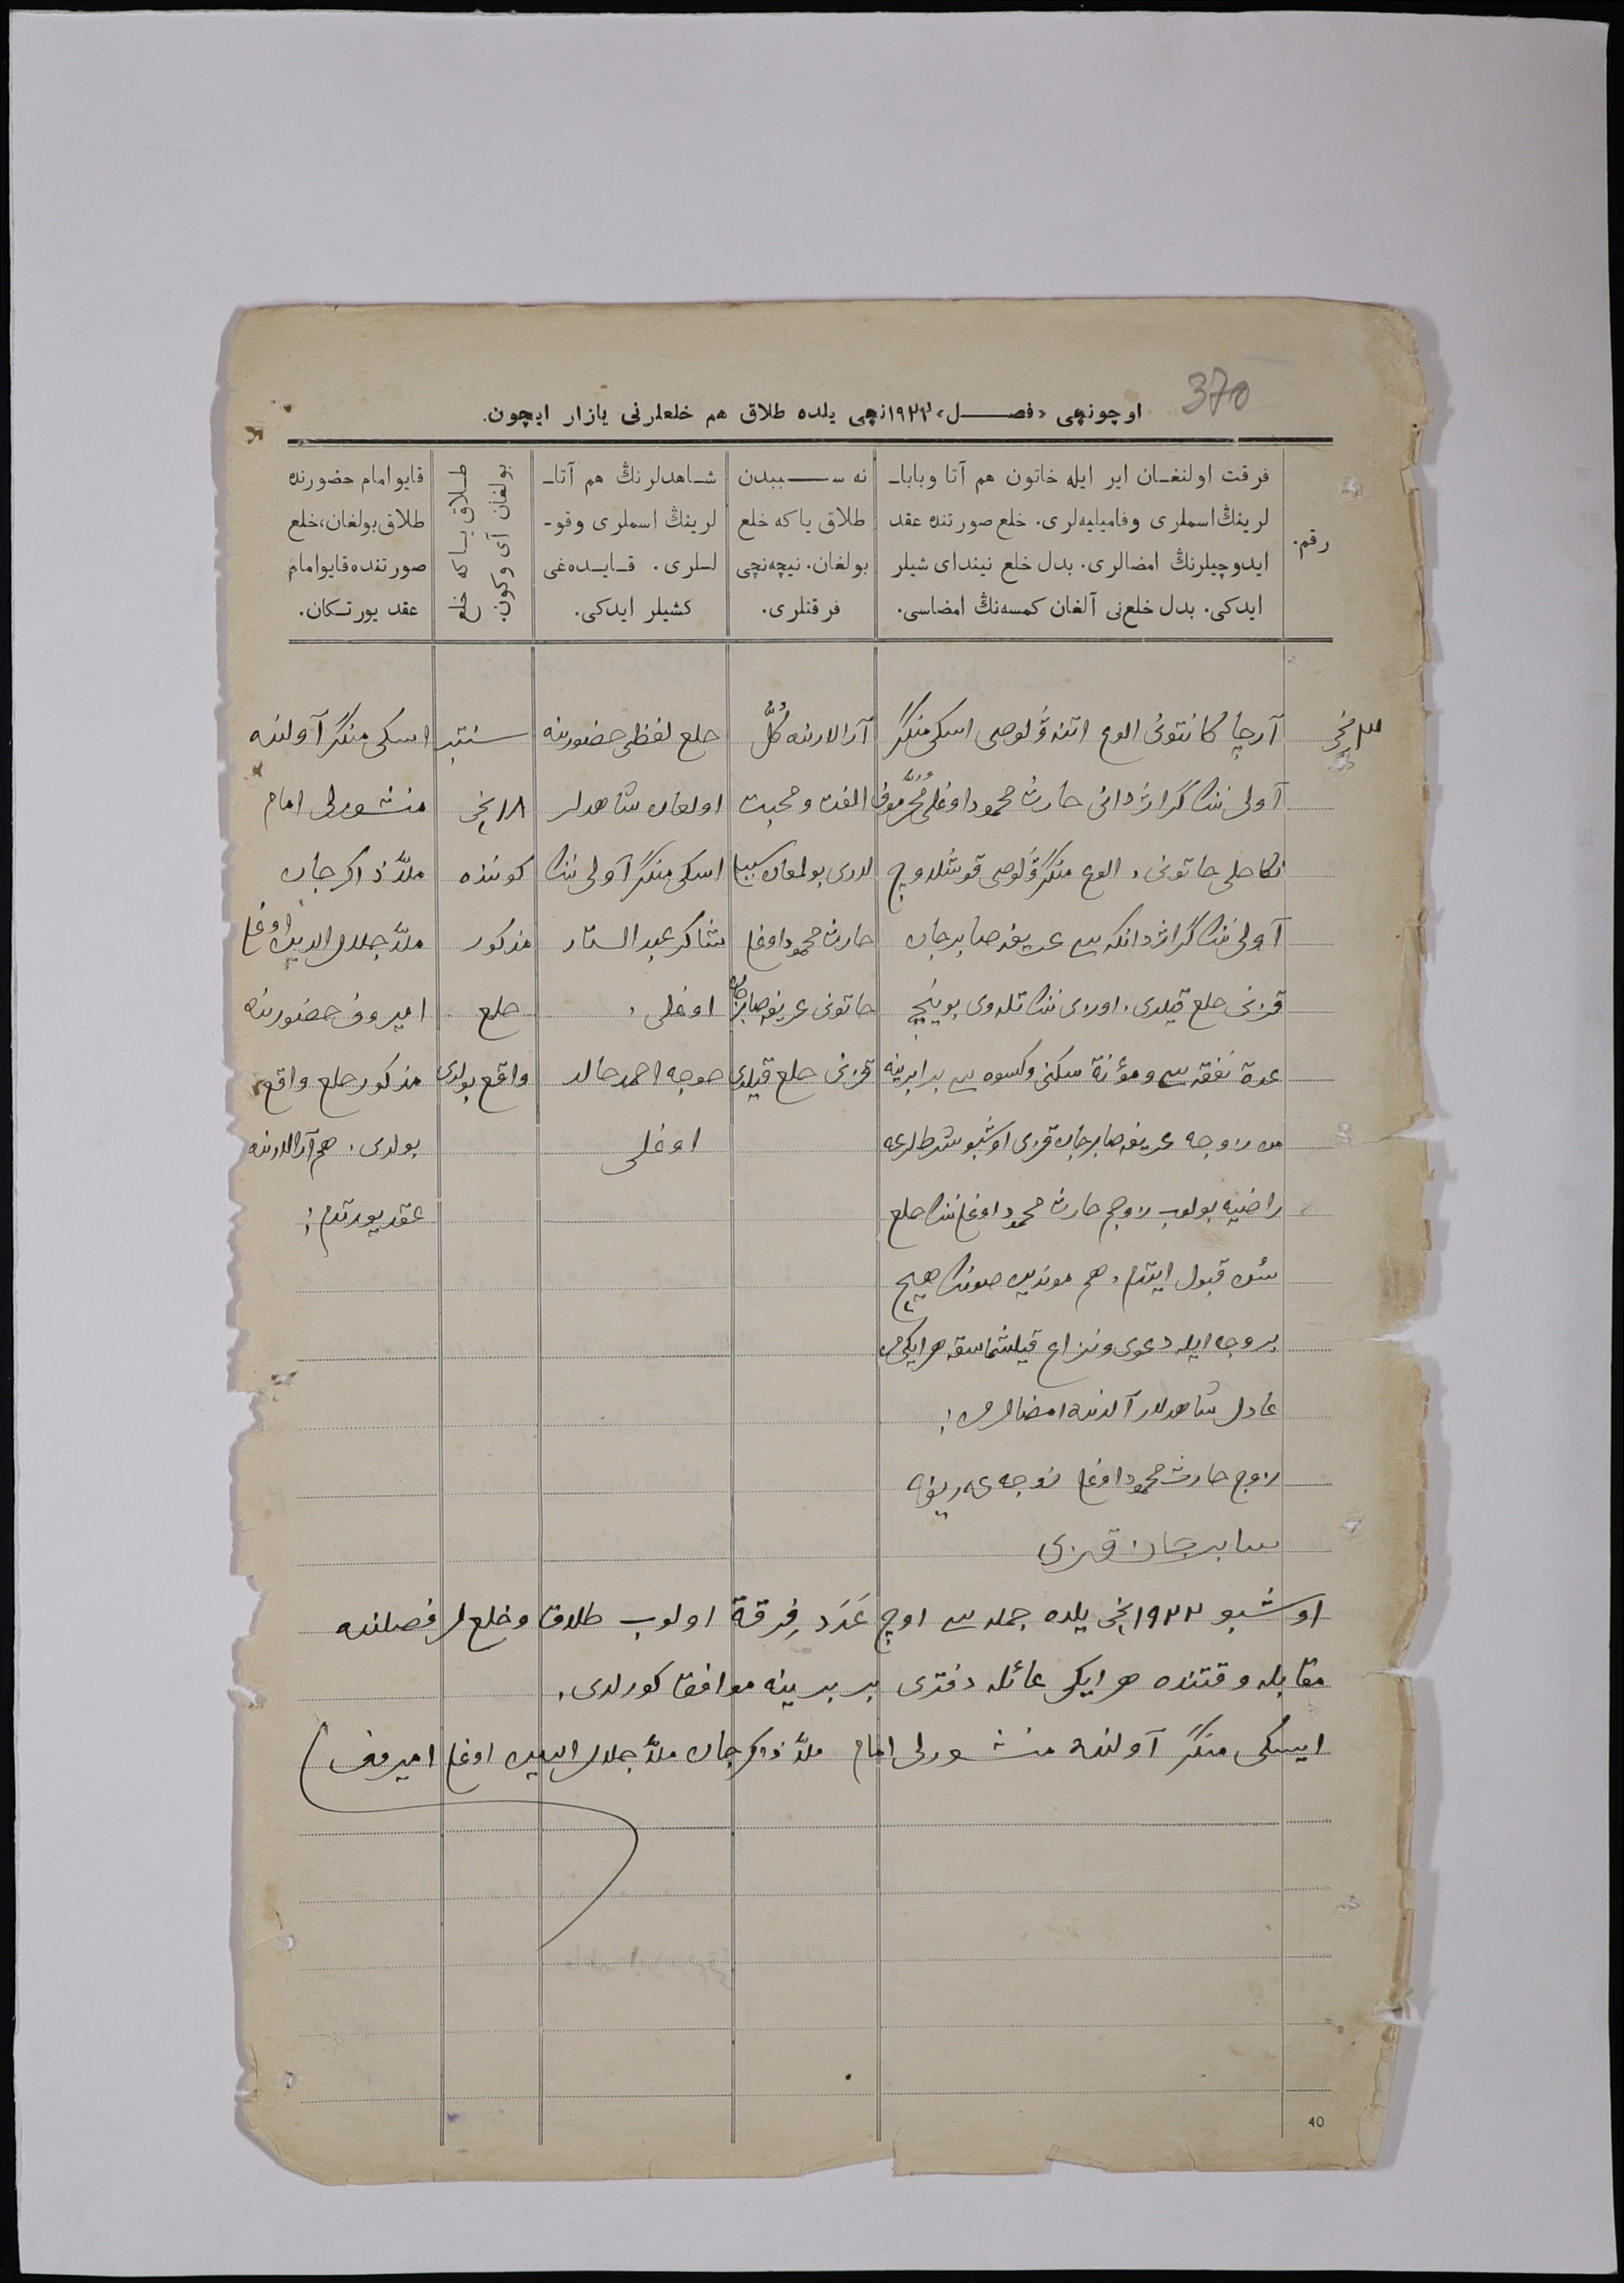 370
اوچونچی «فصل» ۱۹۲۳نچی یلده طلاق هم خلعلرنی یازار ایچون.
رقم.
فرقت اولنغان ایر ایله خاتون هم آتا وبابا-
لرینڭ اسملری وفامیلیه‌لری. خلع صورتنده عقد
ایدوچیلرنڭ امضالری. بدل خلع نیندای شیلر
ایدکی. بدل خلع‌نی آلغان کمسه‌نڭ امضاسی.
نه سببدن
طلاق یاکه خلع
بولغان. نیچه‌نچی
فرقتلری.
شاهدلرنڭ هم آتا-
لرینڭ اسملری وقو-
لـلری. قایده‌غی
کشیلر ایدکی.
طلاق یاکه خلع
بولغان آی وکون
قایو امام حضورنده
طلاق بولغان، خلع
صورتنده قایو امام
عقد یورتکان.
۳نچی
آرچا کانتونی الوغ اتنه ۋلوصی اسکی منگر
آولی ننك گراژدانی حارث محمود اوغلی
نکاحلی خاتونی، الوغ منگر ۋلوصی قوشلاوچ
آولی ننك گراژدانکه سی عریفه صابرجان
قزنی خلع قیلدی. اوزی ننك تلاوی بوینچه
عدة نفقه سی ومؤنة سکنی وکسوه سی برابرینه
من زوجه عریفه صابرجان قزی اوشبو شرطلرغه
راضیه بولوب زوجم حارث محمود اوغلی ننك خلع
سن قبول ایتدم، هم موندین صونك هیچ
بر وجه ایله دعوی ونزاع قیلشماسقه هر ایکی
عادل شاهدلر آلدنده امضا
زوج حارث محمود اوغلی زوجه عه ریفه
سابیرجان قیزی
آرالارنده کُلّ
الفت ومحبت
لاری بولمغان سببلی
حارث محمود اوغلی
خاتونی عریفه صابرجان
قزنی خلع قیلدی
خلع لفظی حضورنده
اولغان شاهدلر
اسکی منگر آولی ننك
شاکر عبدالستار
اوغلی،
خوجه احمد خالد
اوغلی
سنتبر
۱۸نچی
کوننده
مذکور
خلع
واقع بولدی
اسکی منگر آولنده
منشورلی امام
ملّا ذاکرجان
ملّا جلال الدین اوغلی
امیروف حضورنده
مذکور خلع واقع
بولدی، هم آرالارنده
عقد یورتدم؛
اوشبو ۱۹۲۳نچی یلده جمله سی اوچ عَدَد فِرقة اولوب طلاق وخلع لر فصلنده
مقابله وقتنده هر ایکی عائله دفتری بر برینه موافق کورلدی.
ایسکی منگر آولنده منشورلی امام ملّا ذاکرجان ملّا جلال الدین اوغلی امیروف
40